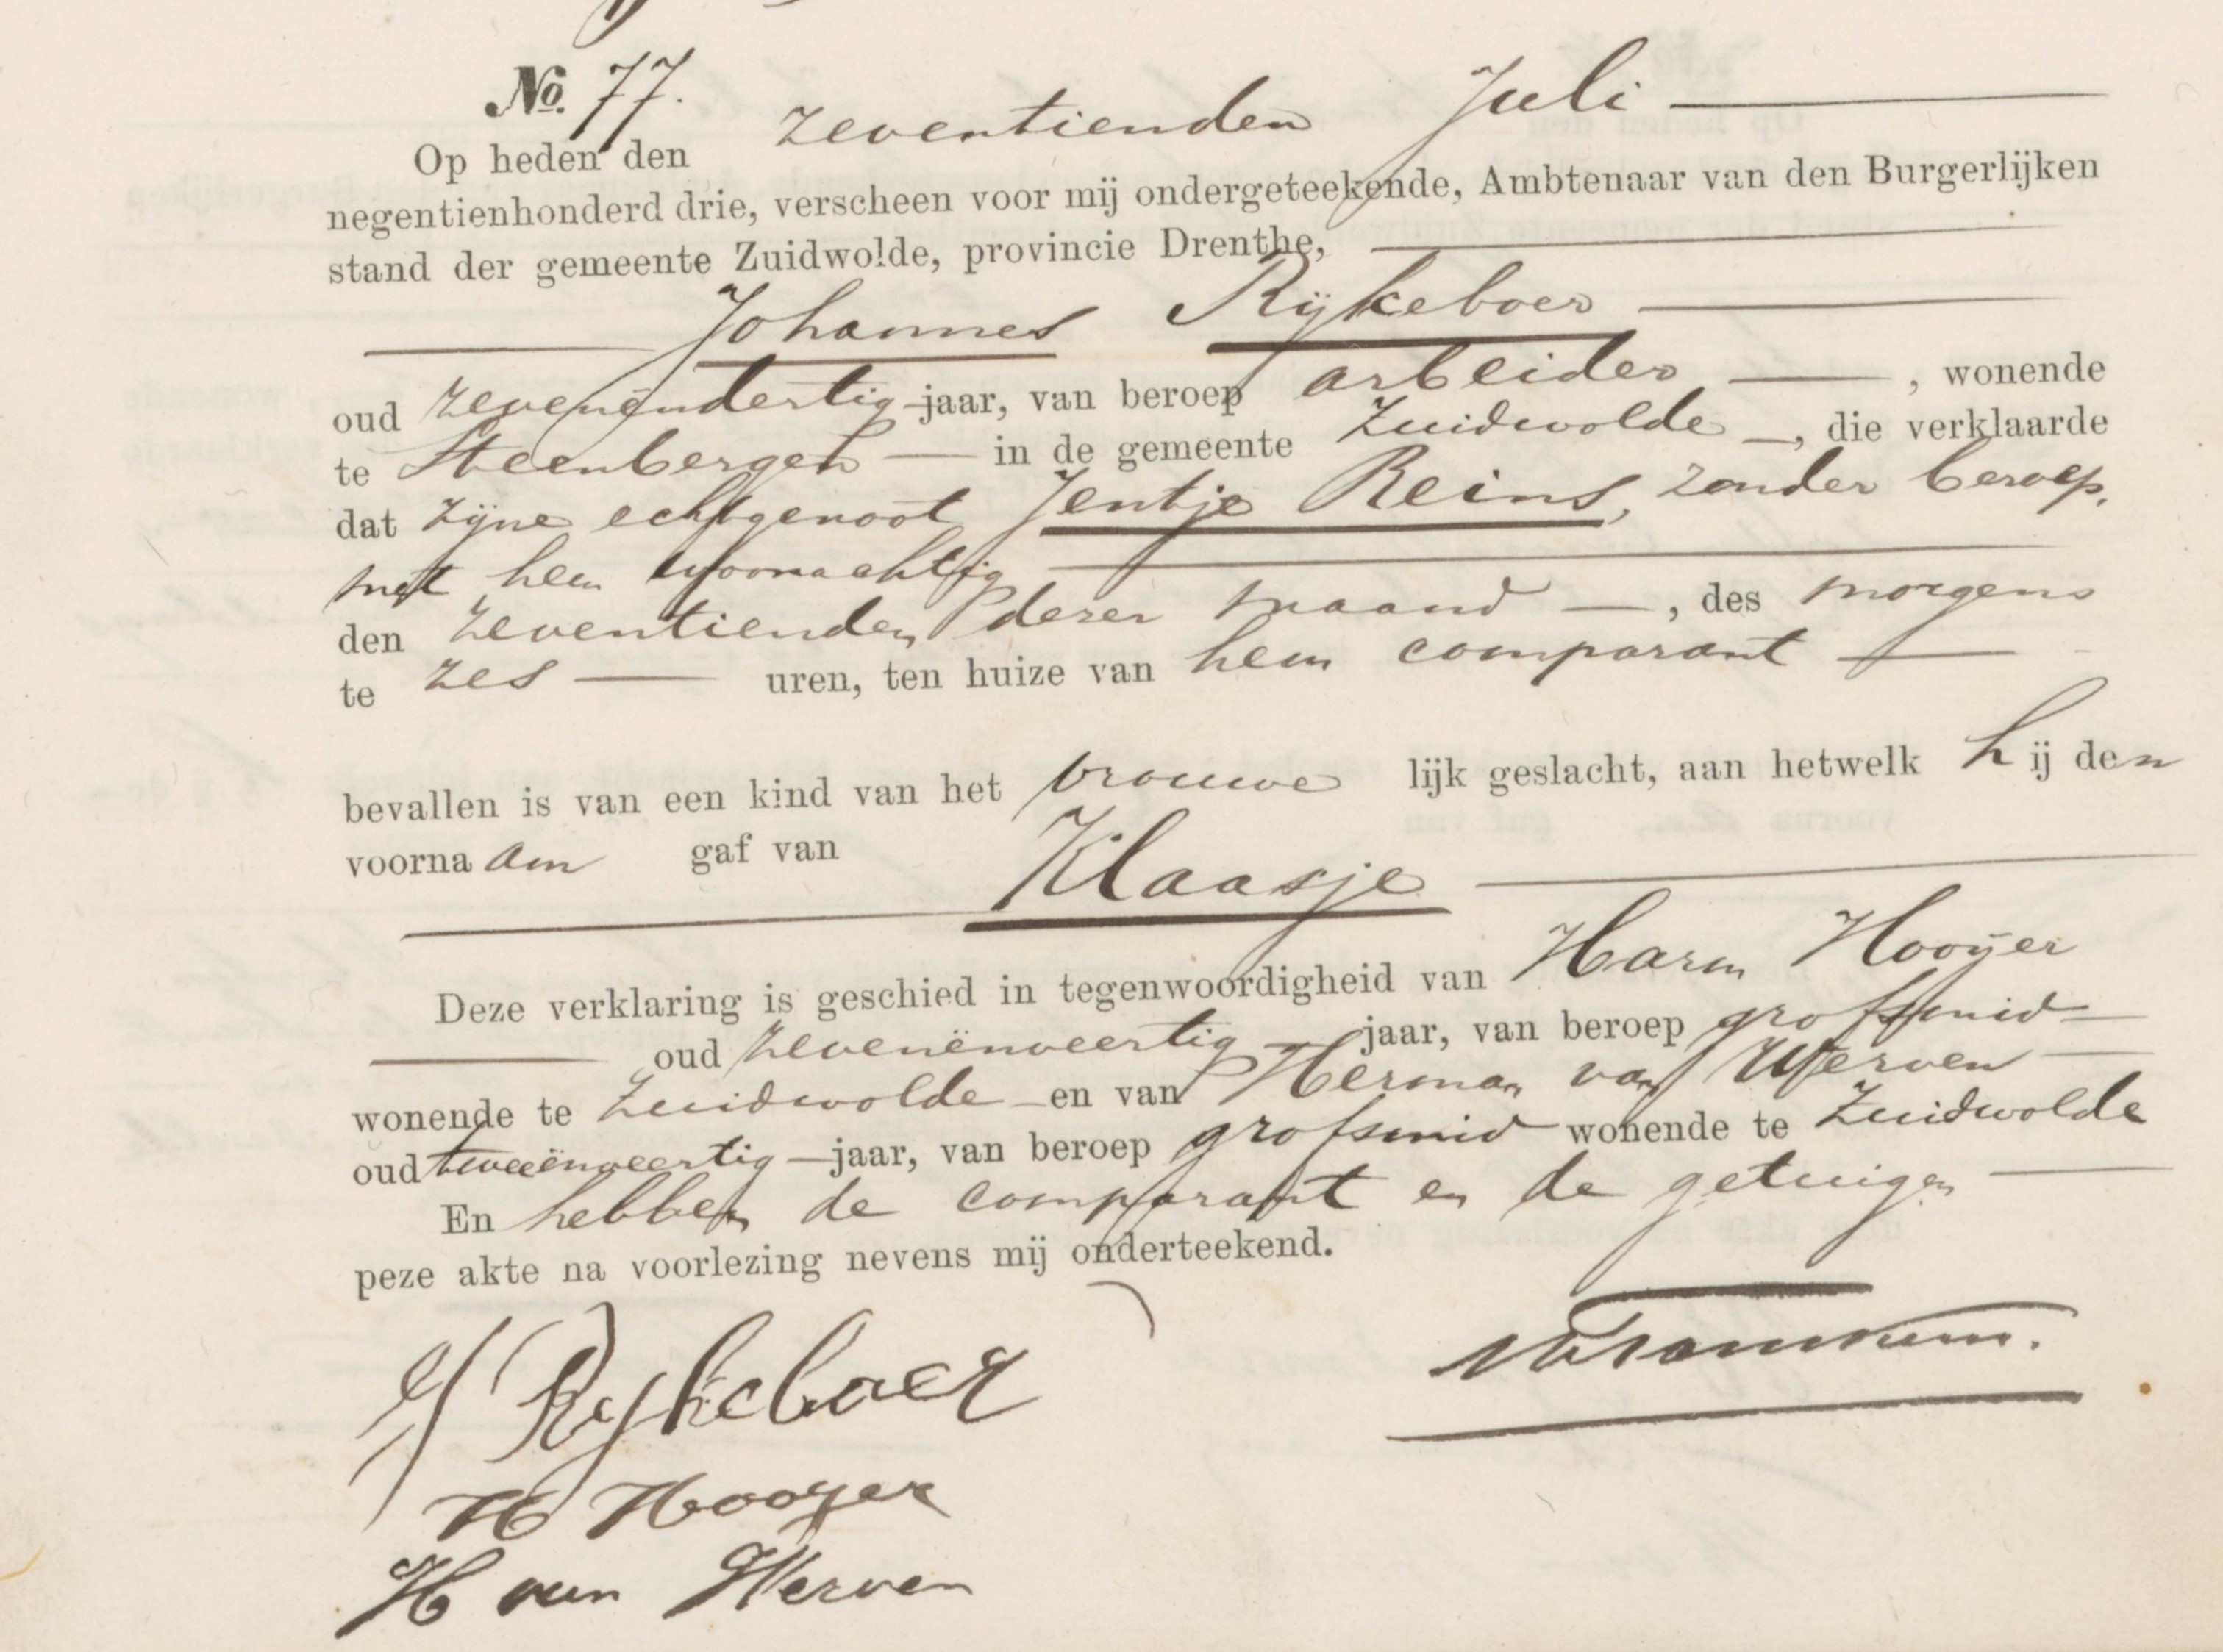 No. 77.
Op heden den zeventienden Juli
negentienhonderd drie, verscheen voor mij ondergeteekende, Ambtenaar van den Burgerlijken
stand der gemeente Zuidwolde, provincie Drenthe,
Johannes Rijkeboer
oud zevenendertig jaar, van beroep arbeider, wonende
te Steenbergen in de gemeente Zuidwolde, die verklaarde
dat zijne echtgenoot Jentje Reins, zonder beroep,
met hem woonachtig
den zeventienden dezer maand, des morgens
te zes uren, ten huize van hem comparant
bevallen is van een kind van het vrouwelijk geslacht, aan hetwelk hij den
voornaam gaf van
Klaasje
Deze verklaring is geschied in tegenwoordigheid van Harm Hooijer
oud zevenënveertig jaar, van beroep grofsmid
wonende te Zuidwolde en van Herman van Werven
oud tweeënveertig jaar, van beroep grofsmid wonende te Zuidwolde
En hebben de comparant en de getuigen
peze akte na voorlezing nevens mij onderteekend.
J Rijkeboer
H Hooyer
H van Werven